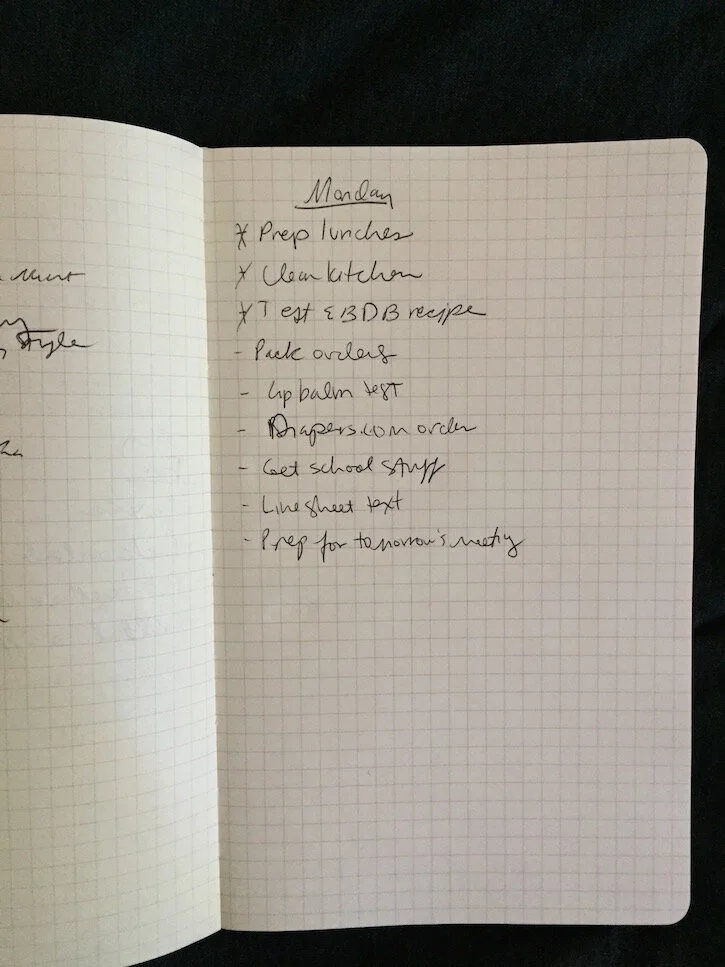 Style
Monday
x Prep lunches
x Clean kitchen
x Test EBDB recipe
- Pack orders
- Lip balm test
- Diapers.com order
- Get school stuff
- Line sheet text
- Prep for tomorrow's meeting